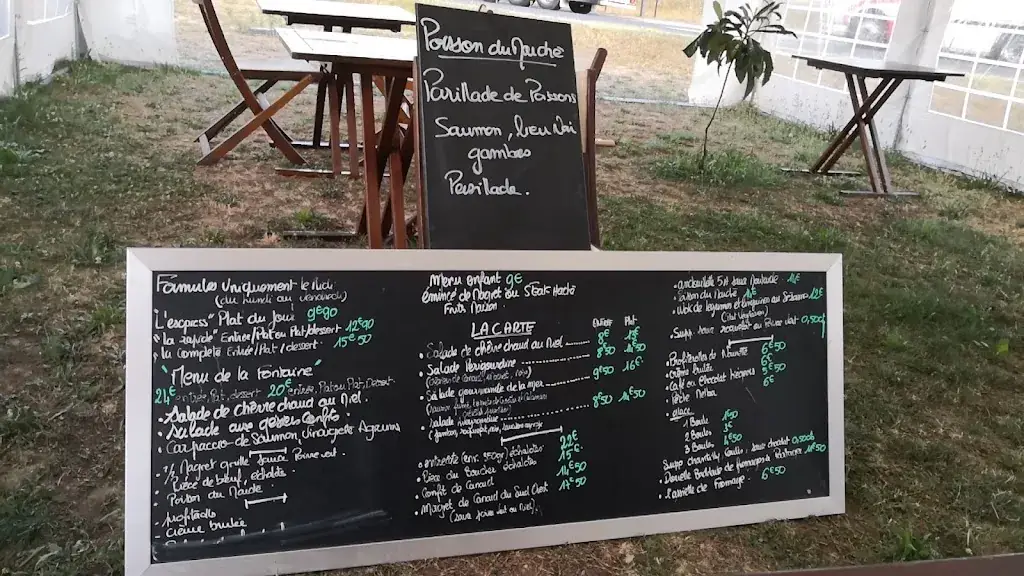 Poisson du Marché
Parillade de Poissons
Saumon, lieu Noi
gambas
Persillade.
Formules Uniquement le Midi
(du lundi au vendredi)
L'express" Plat du Jour 9€90
"la rapide" Entrée/Plat ou Plat/dessert. 12€90
"la complète Entrée/Plat/dessert. 15€50
"Menu de la Fontaine"
24€ entrée, Plat, dessert 20€ entrée, Plat ou Plat, Dessert.
• Salade de chèvre chaud au Miel.
• Salade aux gésiers Confits.
• Carpaccio de Saumon Vinaigrette Agrumes
• ½ Magret grillé Poivre vert.
• Pièce de bœuf, échalote
• Poisson du Marché
• profiteroles
- Crème brulée
Menu enfant 9€
émincé de Magret ou Steak Haché
Frites Maison
LA CARTE
Entrée Plat
• Salade de chèvre chaud au Miel
• Salade Périgourdine 8€50
• Salade gourmande de la mer 9€50 16€
• Salade 8€50 14€50
• entrecôte (env. 350gr) échalotes 22€
• Pièce du Boucher échalotes 15€
• Confit de Canard 14€50
• Magret de Canard du Sud Ouest 17€50
(sauce poivre vert ou Miel).
• andouillette 5A sauce Moutarde
• Poisson du Marché
• Wok de légumes et 12€
Supp. sauce roquefort ou Poivre vert 0,50ct
• Profiteroles
• Crème brulée
• Café ou Chocolat
• Pêche Melba 6€
• glace
1 Boule 1€50
2 Boules 3€
3 Boules 4€50
Supp chantilly sauce chocolat 0,50ct
• L'assiette de Fromage. 6€50